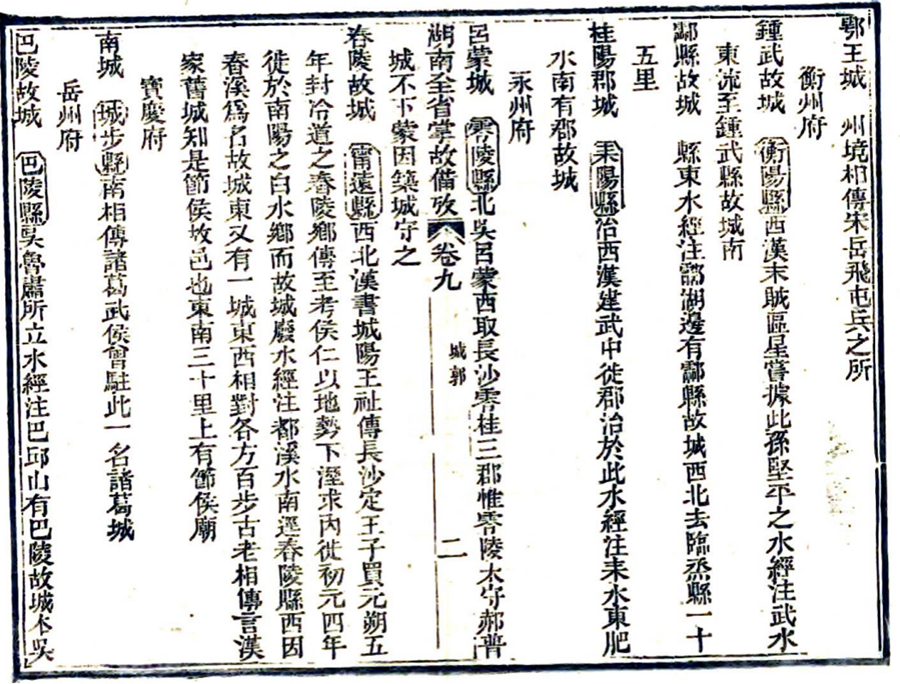 鄂王城　州境相傳宋岳飛屯兵之所
衡州府
鍾武故城　衡陽縣西漢末賊區星嘗據此孫堅平之水經注武水
東流至鍾武縣故城南
酃縣故城　縣東水經注酃湖邊有酃縣故城西北去臨烝縣一十
五里
桂陽郡城　耒陽縣治西漢建武中徙郡治於此水經注耒水東肥
水南有郡故城
永州府
呂蒙城　零陵縣北吳呂蒙西取長沙零桂三郡惟零陵太守郝普
湖南全省掌故備攷　卷九　城郭　二
城不下蒙因築城守之
舂陵故城　甯遠縣西北漢書城陽王祉傳長沙定王子買元朔五
年封冷道之舂陵鄉傳至考侯仁以地勢下溼求內徙初元四年
徙於南陽之白水鄉而故城廢水經注都溪水南逕舂陵縣西因
舂溪為名故城東又有一城東西相對各方百步古老相傳言漢
家舊城知是節侯故邑也東南三十里上有節侯廟
寶慶府
南城　城步縣南相傳諸葛武侯曾駐此一名諸葛城
岳州府
巴陵故城　巴陵縣吳魯肅所立水經注巴邱山有巴陵故城本吳